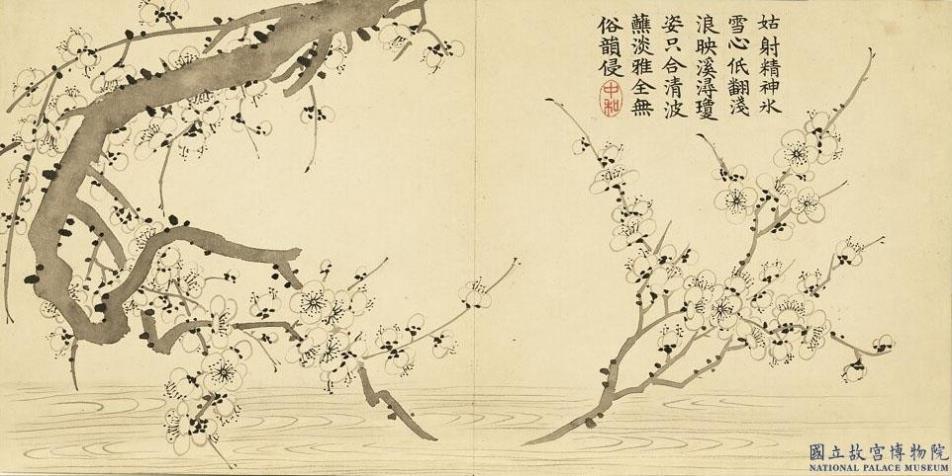 姑射精神氷
雪心低翻淺
浪映溪潯瓊
姿只合清波
蘸淡雅全無
俗韻侵
中和
國立故宮博物院
NATIONAL PALACE MUSEUM